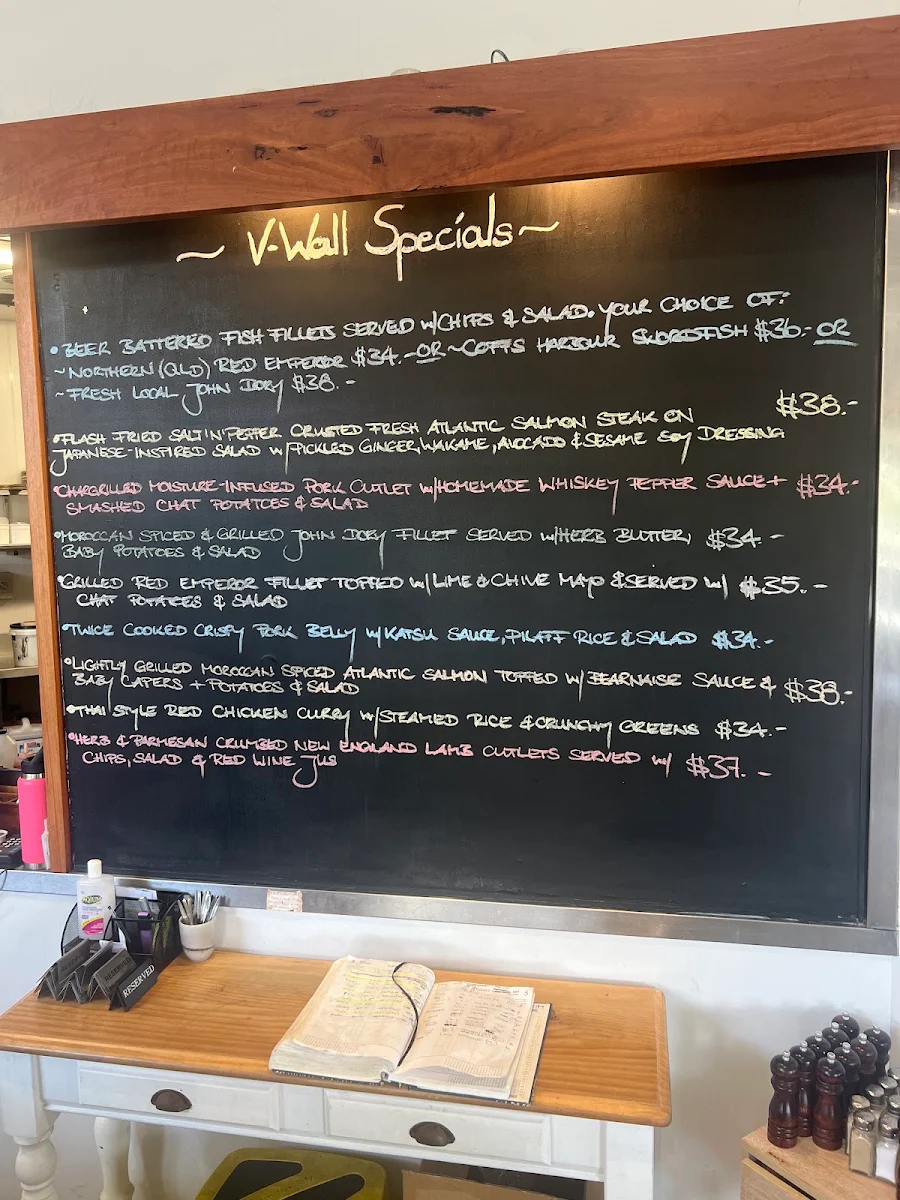 ~ V-Wall Specials ~
• BEER BATTERED FISH FILLETS SERVED W/CHIPS & SALAD. YOUR CHOICE OF:
~ NORTHERN (QLD) RED EMPEROR $34.- OR ~ COFFS HARBOUR SWORDFISH $36.- OR
~ FRESH LOCAL JOHN DORY $38.-
• FLASH FRIED SALT 'N' PEPPER CRUSTED FRESH ATLANTIC SALMON STEAK ON $38.-
JAPANESE-INSPIRED SALAD W/PICKLED GINGER, WAKAME, AVOCADO & SESAME SOY DRESSING
• CHARGRILLED MOISTURE-INFUSED PORK CUTLET W/HOMEMADE WHISKEY PEPPER SAUCE + $34.-
SMASHED CHAT POTATOES & SALAD
• MOROCCAN SPICED & GRILLED JOHN DORY FILLET SERVED W/HERB BUTTER, $34.-
BABY POTATOES & SALAD
• GRILLED RED EMPEROR FILLET TOPPED W/LIME & CHIVE MAYO & SERVED W/ $35.-
CHAT POTATOES & SALAD
• TWICE COOKED CRISPY PORK BELLY W/KATSU SAUCE, PILAFF RICE & SALAD $34.-
• LIGHTLY GRILLED MOROCCAN SPICED ATLANTIC SALMON TOPPED W/BEARNAISE SAUCE & $38.-
BABY CAPERS + POTATOES & SALAD
• THAI STYLE RED CHICKEN CURRY W/STEAMED RICE & CRUNCHY GREENS $34.-
• HERB & PARMESAN CRUMBED NEW ENGLAND LAMB CUTLETS SERVED W/ $37.-
CHIPS, SALAD & RED WINE JUS
RESERVED
RESERVED